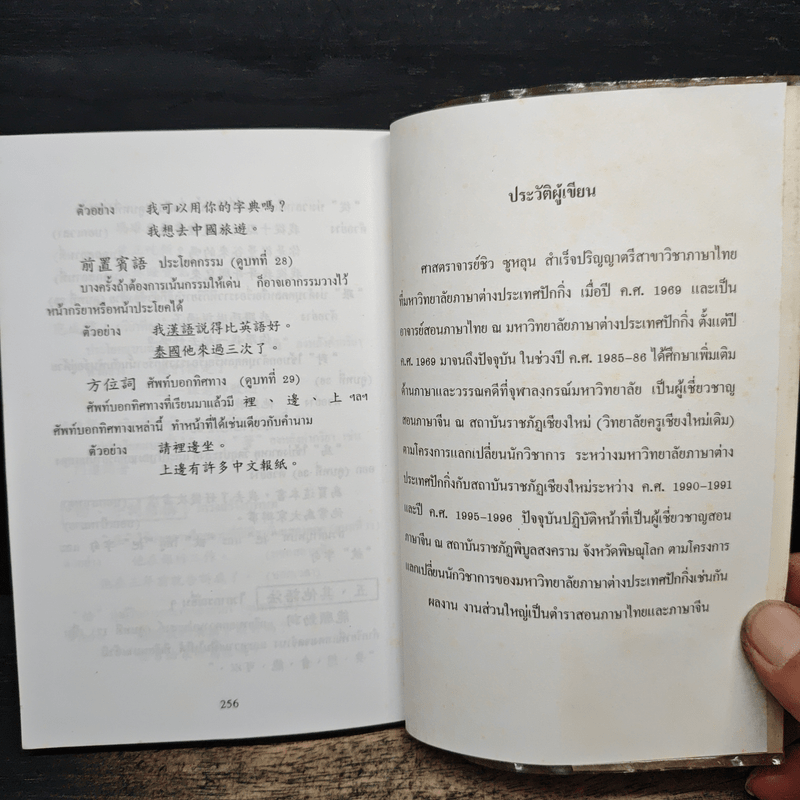 ตัวอย่าง 我可以用你的字典嗎？
我想去中國旅遊。
前置賓語 ประโยคกรรม (ดูบทที่ 28)
บางครั้งถ้าต้องการเน้นกรรมให้เด่น ก็อาจเอากรรมวางไว้
หน้ากริยาหรือหน้าประโยคได้
ตัวอย่าง 我漢語説得比英語好。
泰國他來過三次了。
方位詞 ศัพท์บอกทิศทาง (ดูบทที่ 29)
ศัพท์บอกทิศทางที่เรียนมาแล้วมี 裡、邊、上 ฯลฯ
ศัพท์บอกทิศทางเหล่านี้ ทำหน้าที่ได้เช่นเดียวกับคำนาม
ตัวอย่าง 請裡邊坐。
上邊有許多中文報紙。
256
ประวัติผู้เขียน
ศาสตราจารย์ชิว ซูหลุน สำเร็จปริญญาตรีสาขาวิชาภาษาไทย
ที่มหาวิทยาลัยภาษาต่างประเทศปักกิ่ง เมื่อปี ค.ศ. 1969 และเป็น
อาจารย์สอนภาษาไทย ณ มหาวิทยาลัยภาษาต่างประเทศปักกิ่ง ตั้งแต่ปี
ค.ศ. 1969 มาจนถึงปัจจุบัน ในช่วงปี ค.ศ. 1985-86 ได้ศึกษาเพิ่มเติม
ด้านภาษาและวรรณคดีที่จุฬาลงกรณ์มหาวิทยาลัย เป็นผู้เชี่ยวชาญ
สอนภาษาจีน ณ สถาบันราชภัฏเชียงใหม่ (วิทยาลัยครูเชียงใหม่เดิม)
ตามโครงการแลกเปลี่ยนนักวิชาการ ระหว่างมหาวิทยาลัยภาษาต่าง
ประเทศปักกิ่งกับสถาบันราชภัฏเชียงใหม่ระหว่าง ค.ศ. 1990-1991
และปี ค.ศ. 1995-1996 ปัจจุบันปฏิบัติหน้าที่เป็นผู้เชี่ยวชาญสอน
ภาษาจีน ณ สถาบันราชภัฏพิบูลสงคราม จังหวัดพิษณุโลก ตามโครงการ
แลกเปลี่ยนนักวิชาการของมหาวิทยาลัยภาษาต่างประเทศปักกิ่งเช่นกัน
ผลงาน งานส่วนใหญ่เป็นตำราสอนภาษาไทยและภาษาจีน